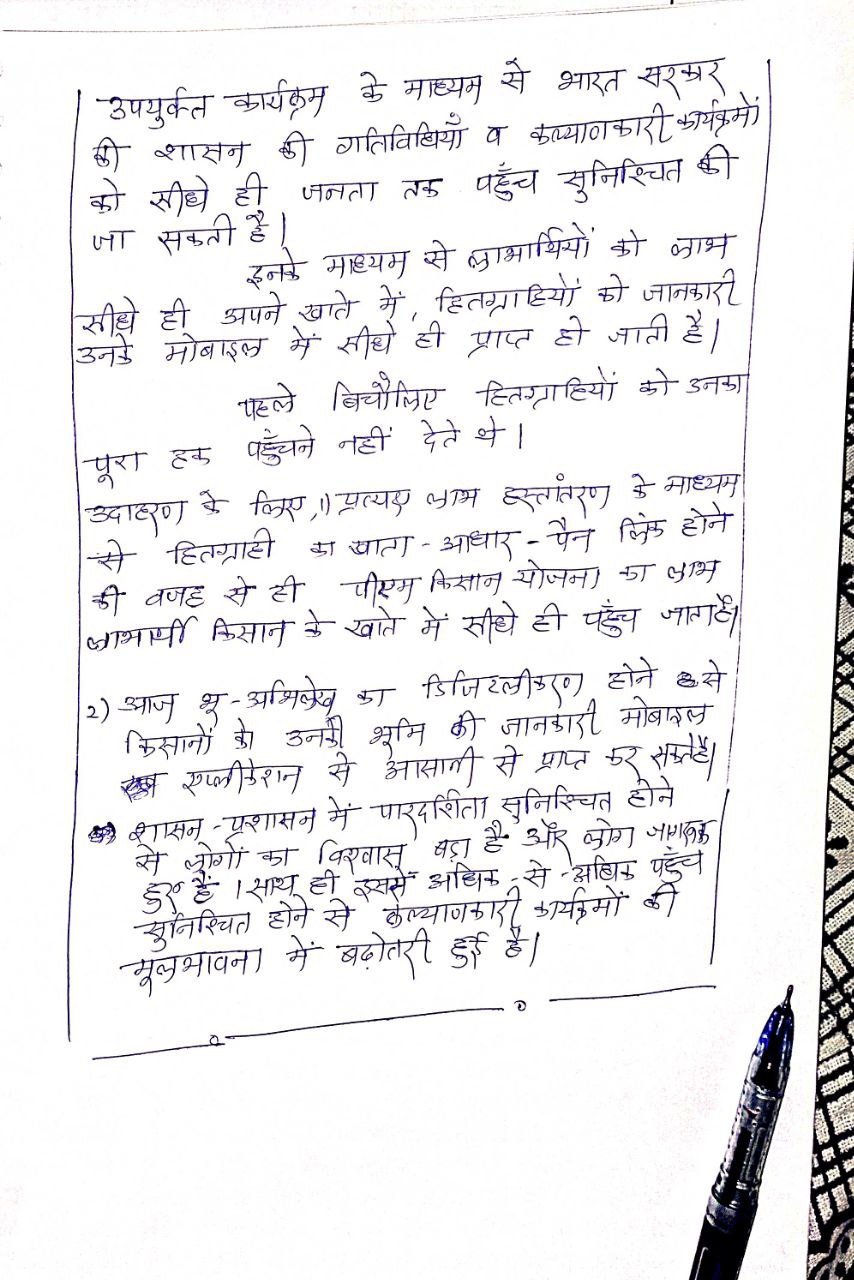 उपयुर्कत कार्यक्रम के माध्यम से भारत सरकार
की शासन की गतिविधियाँ व कल्याणकारी कार्यक्रमों
को सीधे ही जनता तक पहुँच सुनिश्चित की
जा सकती है।
इनके माध्यम से लाभार्थियों को लाभ
सीधे ही अपने खाते में, हितग्राहियों को जानकारी
उनके मोबाइल में सीधे ही प्राप्त हो जाती है।
पहले बिचौलिए हितग्राहियों को उनका
पूरा हक पहुँचने नहीं देते थे।
उदाहरण के लिए, 1) प्रत्यक्ष लाभ हस्तांतरण के माध्यम
से हितग्राही का खाता - आधार - पैन लिंक होने
की वजह से ही पीएम किसान योजना का लाभ
लाभार्थी किसान के खाते में सीधे ही पहुँच जाता है।
2) आज भू-अभिलेख का डिजिटलीकरण होने से
किसानों को उनकी भूमि की जानकारी मोबाइल
एप्लीकेशन से आसानी से प्राप्त कर सकते है।
शासन-प्रशासन में पारदर्शिता सुनिश्चित होने
से लोगों का विश्वास बड़ा है और लोग जागरूक
हुए हैं। साथ ही इसमें अधिक-से-अधिक पहुँच
सुनिश्चित होने से कल्याणकारी कार्यक्रमों की
मूलभावना में बढ़ोतरी हुई है।